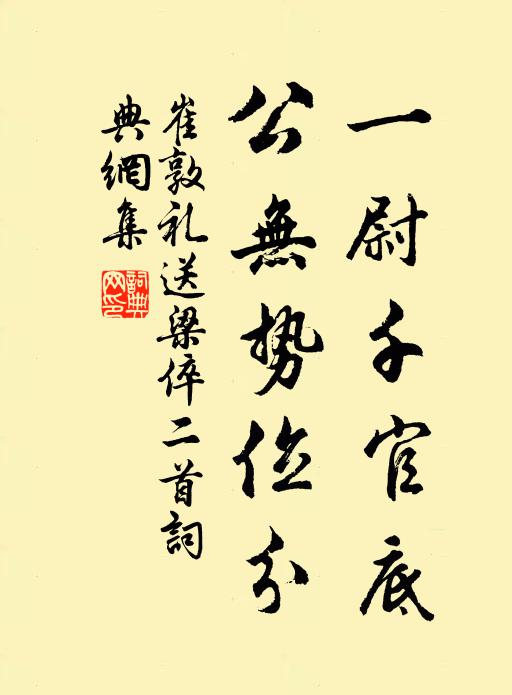 一尉千官底
公無勢位分
崔敦礼送梁倅二首詞
典網集
詞典網印